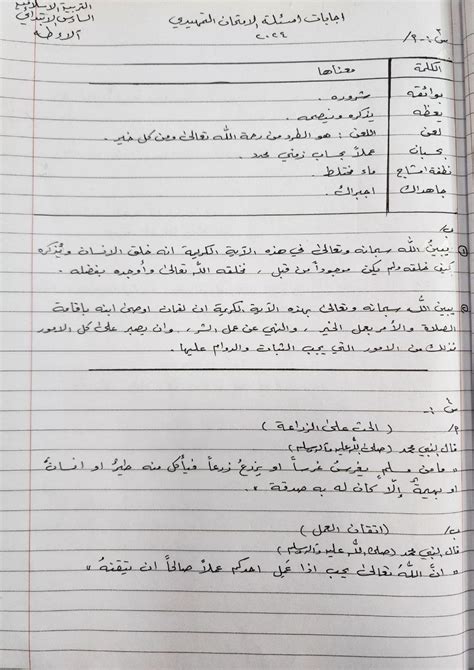 التربية الإسلامية
السادس الابتدائي
اجابات اسئلة الامتحان التمهيدي
٢٠٢٤
س١:- ٢/
الكلمة معناها
بوائقه شروره .
يعظه يذكره وينصحه .
لعن اللعن : هو الطرد من رحمة الله تعالى ومن كل خير .
بحسبان عملاً بحساب زمني محدد .
نطفة امشاج ماء مختلط .
جاهداك اجبراك .
ب/
١ يبين الله سبحانه وتعالى في هذه الآية الكريمة انه خلق الانسان ويُذكره
كيف خلقه ولم يكن موجوداً من قبل ، فخلقه الله تعالى وأوجده بفضله .
يبين الله سبحانه وتعالى بهذه الآية الكريمة ان لقمان اوصى ابنه بإقامة
الصلاة والأمر بعمل الخير ، والنهي عن عمل الشر ، وان يصبر على كل الامور
فذلك من الامور التي يجب الثبات والدوام عليها .
س :-
٢/ ( الحث على الزراعة )
قال النبي محمد (صلى الله عليه وآله وسلم)
« مامن مسلم يغرسُ غرساً او يزرعُ زرعاً فيأكل منه طيرٌ او انسانٌ
او بهيمةٌ إلّا كان له به صدقة » .
ب/ ( اتقان العمل )
قال النبي محمد (صلى الله عليه وآله وسلم)
« انَّ اللهَ تعالى يحب اذا عَمِل احدكم عملاً صالحاً ان يتقنهُ »